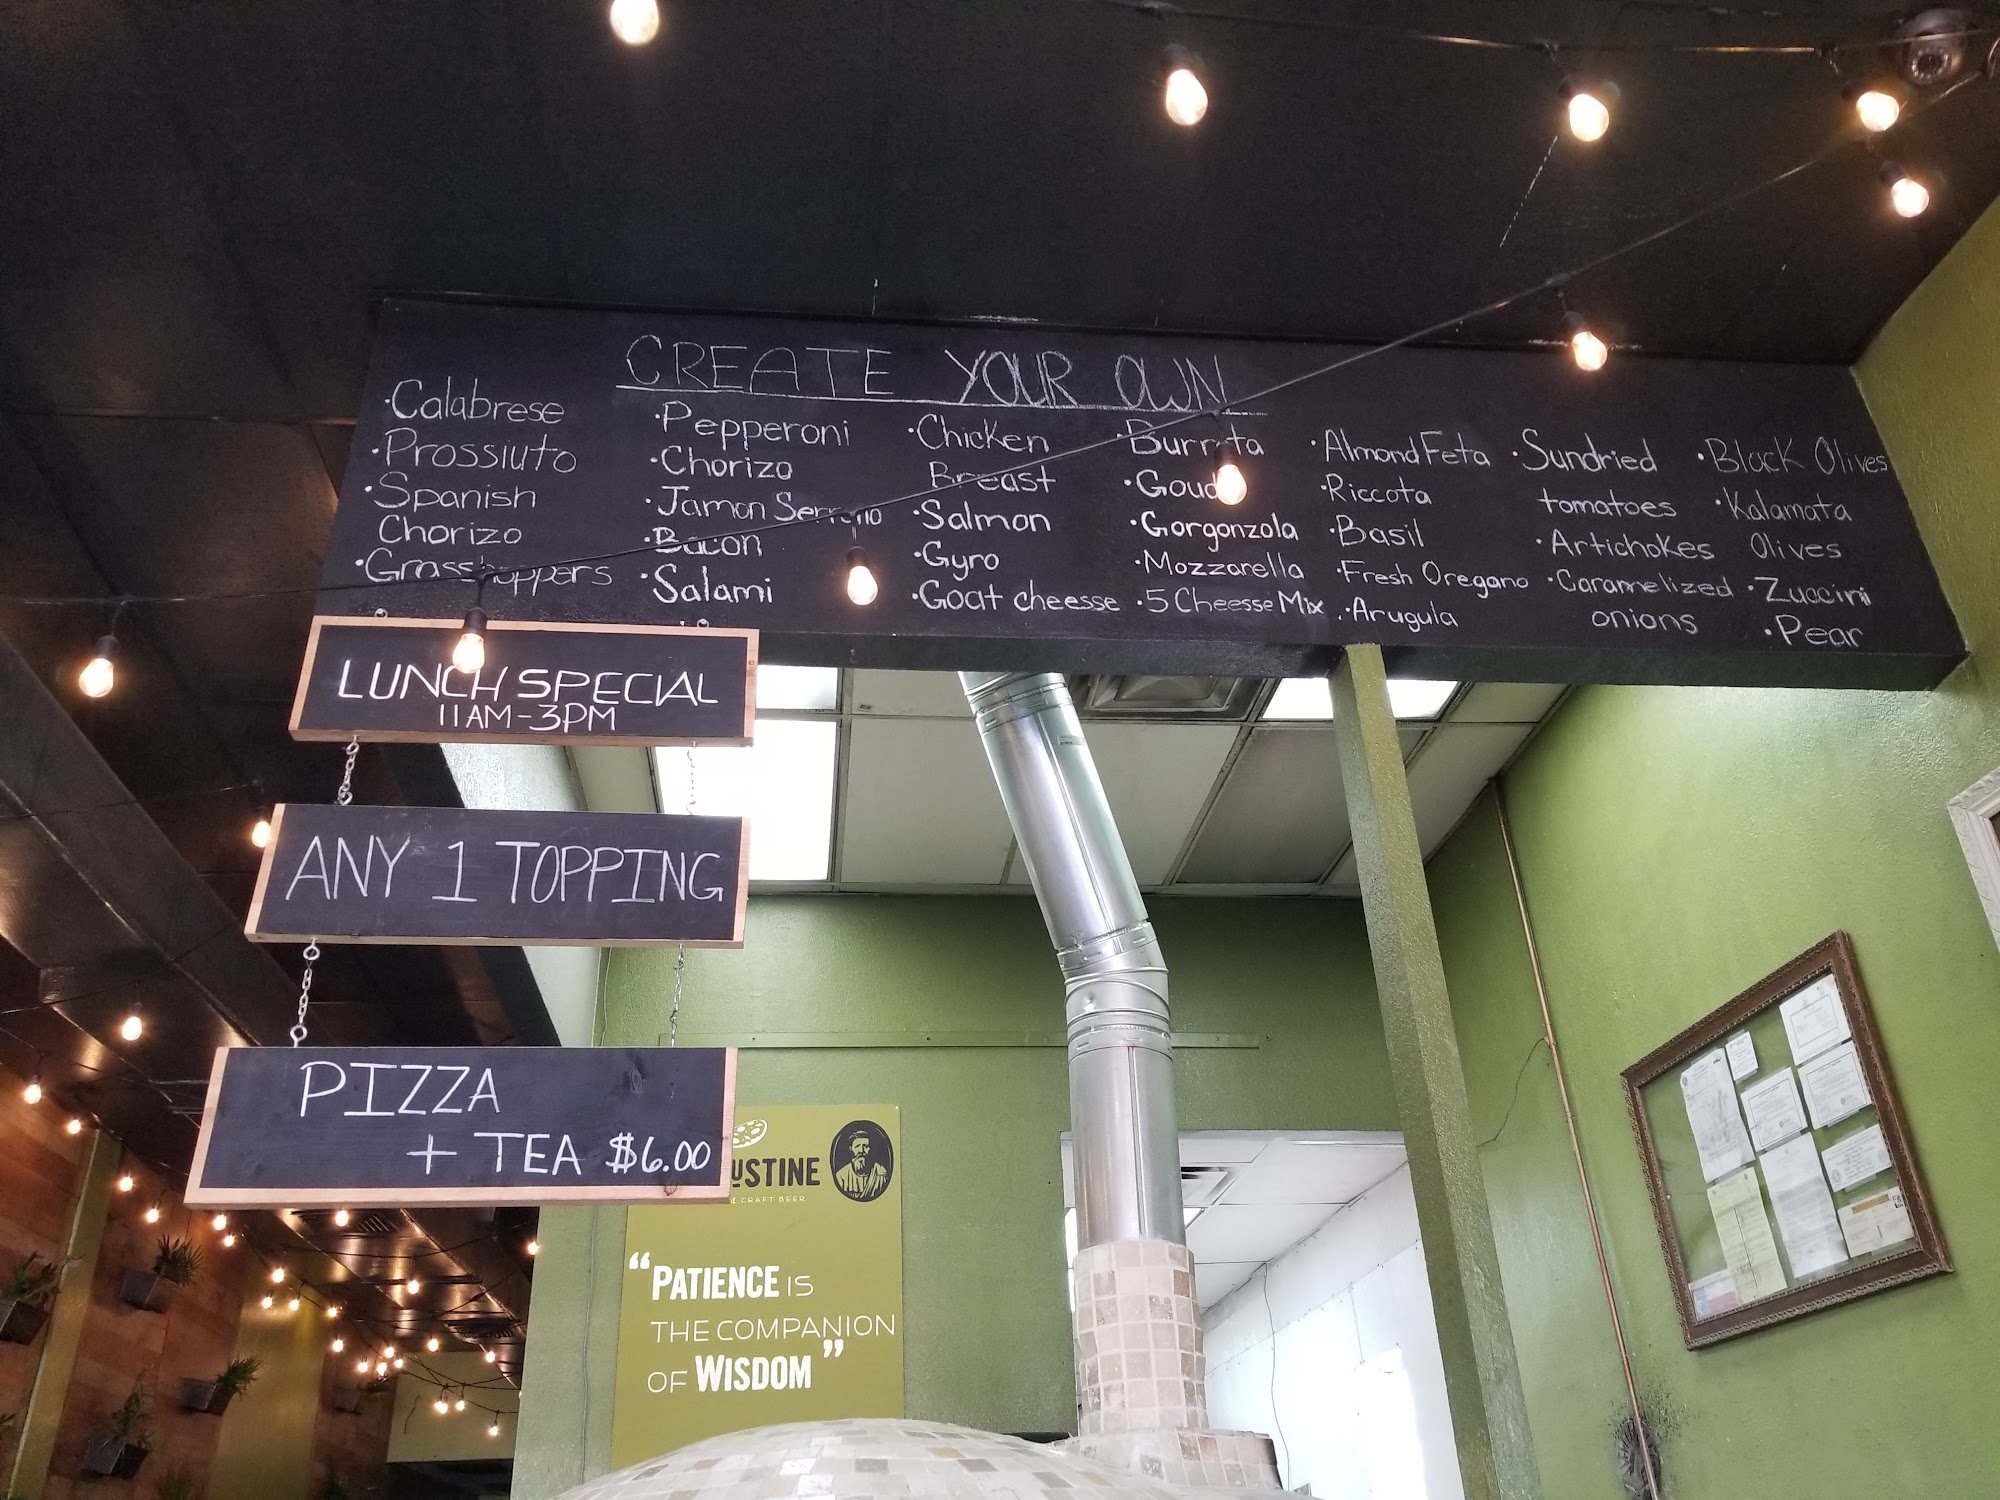 CREATE YOUR OWN
·Calabrese
·Prossiuto
·Spanish
Chorizo
·Grasshoppers
·Pepperoni
·Chorizo
·Jamon Serrano
·Bacon
·Salami
·Chicken
Breast
·Salmon
·Gyro
·Goat cheesse
·Burrata
·Gouda
·Gorgonzola
·Mozzarella
·5 Cheesse Mix
·Almond Feta
·Riccota
·Basil
·Fresh Oregano
·Arugula
·Sundried
tomatoes
·Artichokes
·Caramelized
onions
·Black Olives
·Kalamata
Olives
·Zuccini
·Pear
LUNCH SPECIAL
11AM-3PM
ANY 1 TOPPING
PIZZA
+ TEA $6.00
USTINE
CRAFT BEER
"PATIENCE IS
THE COMPANION
OF WISDOM"